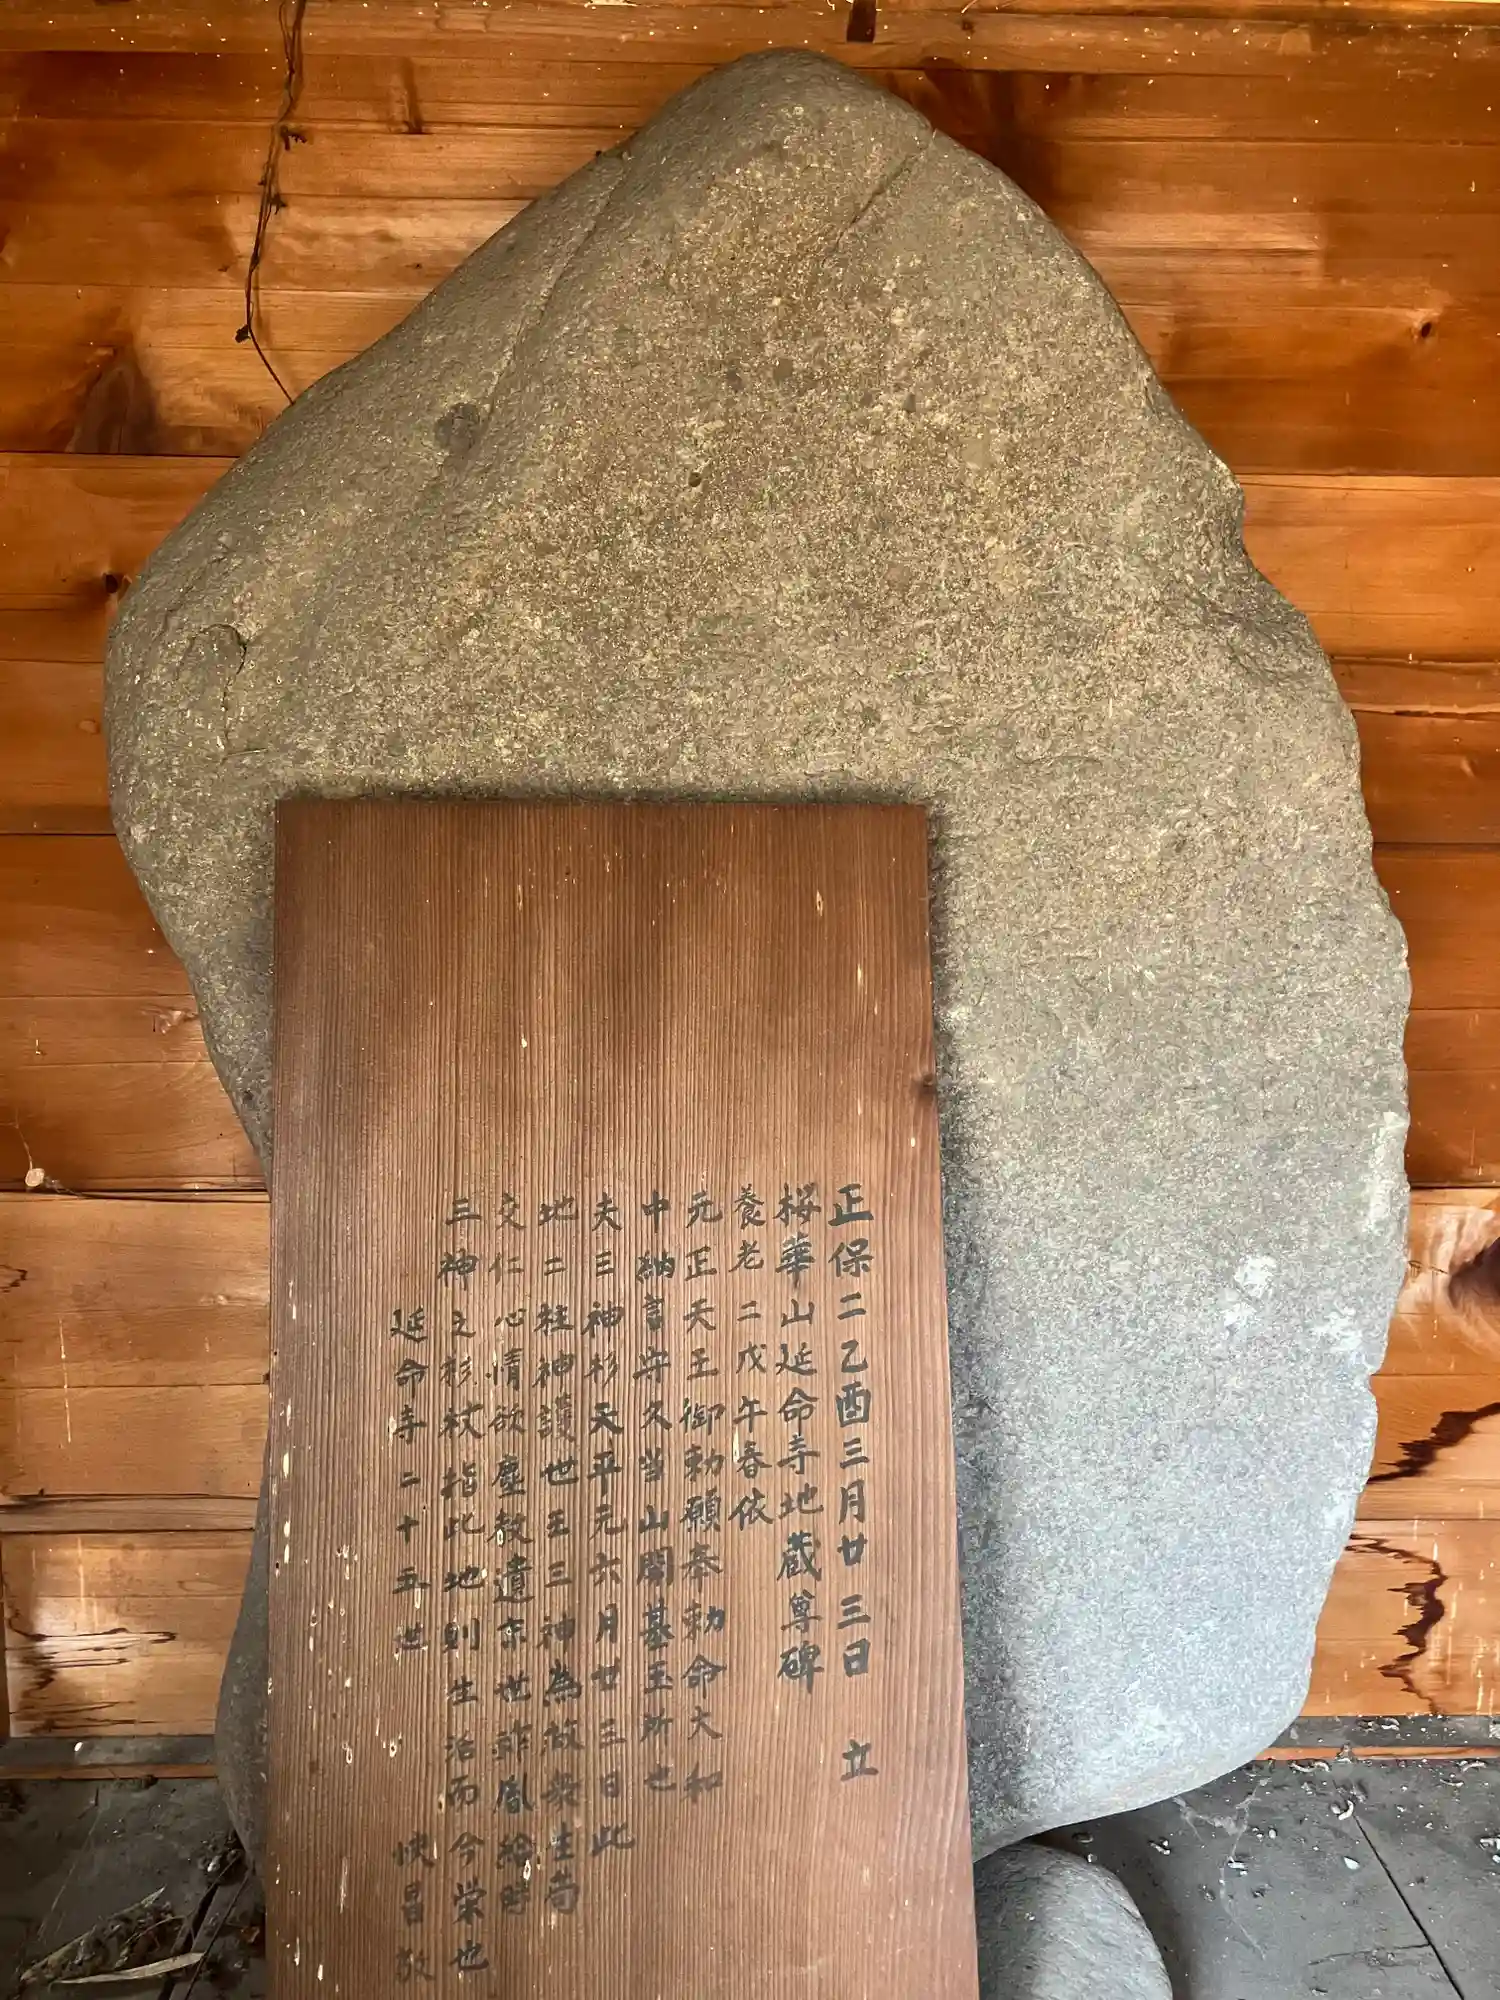 正保二乙酉三月廿三日 立
桜華山延命寺地蔵尊碑
養老二戊午春依
元正天王御勅願奉勅命大和
中納言守久当山開基玉所也
夫三神杉天平元六月廿三日此
地二柱神護世王三神為救衆生
交仁心情欲塵
三神之杉杖指此地則生治而今栄也
延命寺二十五世 快昌敬